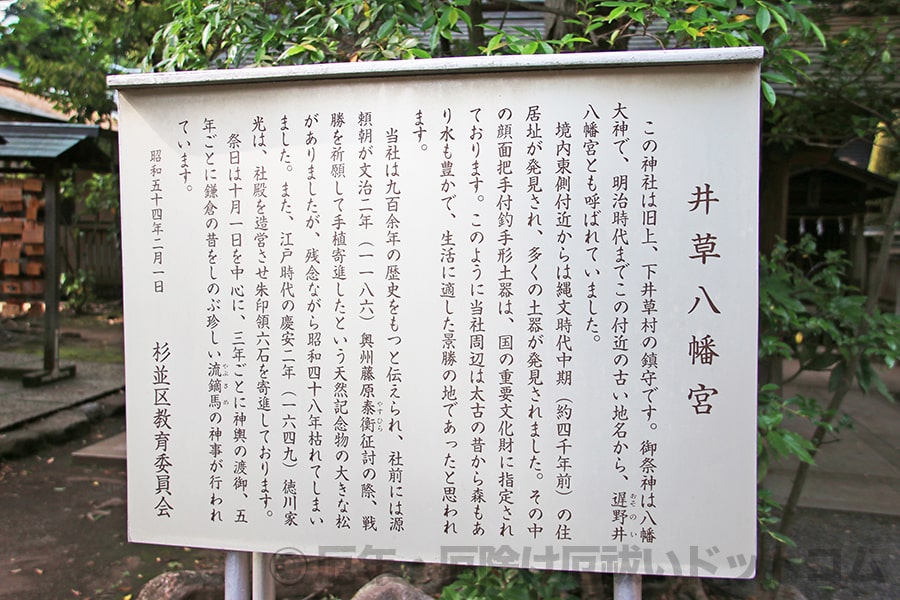 井草八幡宮
この神社は旧上、下井草村の鎮守です。御祭神は八幡
大神で、明治時代までこの付近の古い地名から、遅野井
おそのい
八幡宮とも呼ばれていました。
境内東側付近からは縄文時代中期（約四千年前）の住
居址が発見され、多くの土器が発見されました。その中
の顔面把手付釣手形土器は、国の重要文化財に指定され
ております。このように当社周辺は太古の昔から森もあ
り水も豊かで、生活に適した景勝の地であったと思われ
ます。
当社は九百余年の歴史をもつと伝えられ、社前には源
頼朝が文治二年（一一八六）奥州藤原泰衡征討の際、戦
やすひら
勝を祈願して手植寄進したという天然記念物の大きな松
がありましたが、残念ながら昭和四十八年枯れてしまい
ました。また、江戸時代の慶安二年（一六四九）徳川家
光は、社殿を造営させ朱印領六石を寄進しております。
祭日は十月一日を中心に、三年ごとに神輿の渡御、五
年ごとに鎌倉の昔をしのぶ珍しい流鏑馬の神事が行われ
やぶさめ
ています。
昭和五十四年二月一日
杉並区教育委員会
©厄年・厄除け厄祓いドットコム